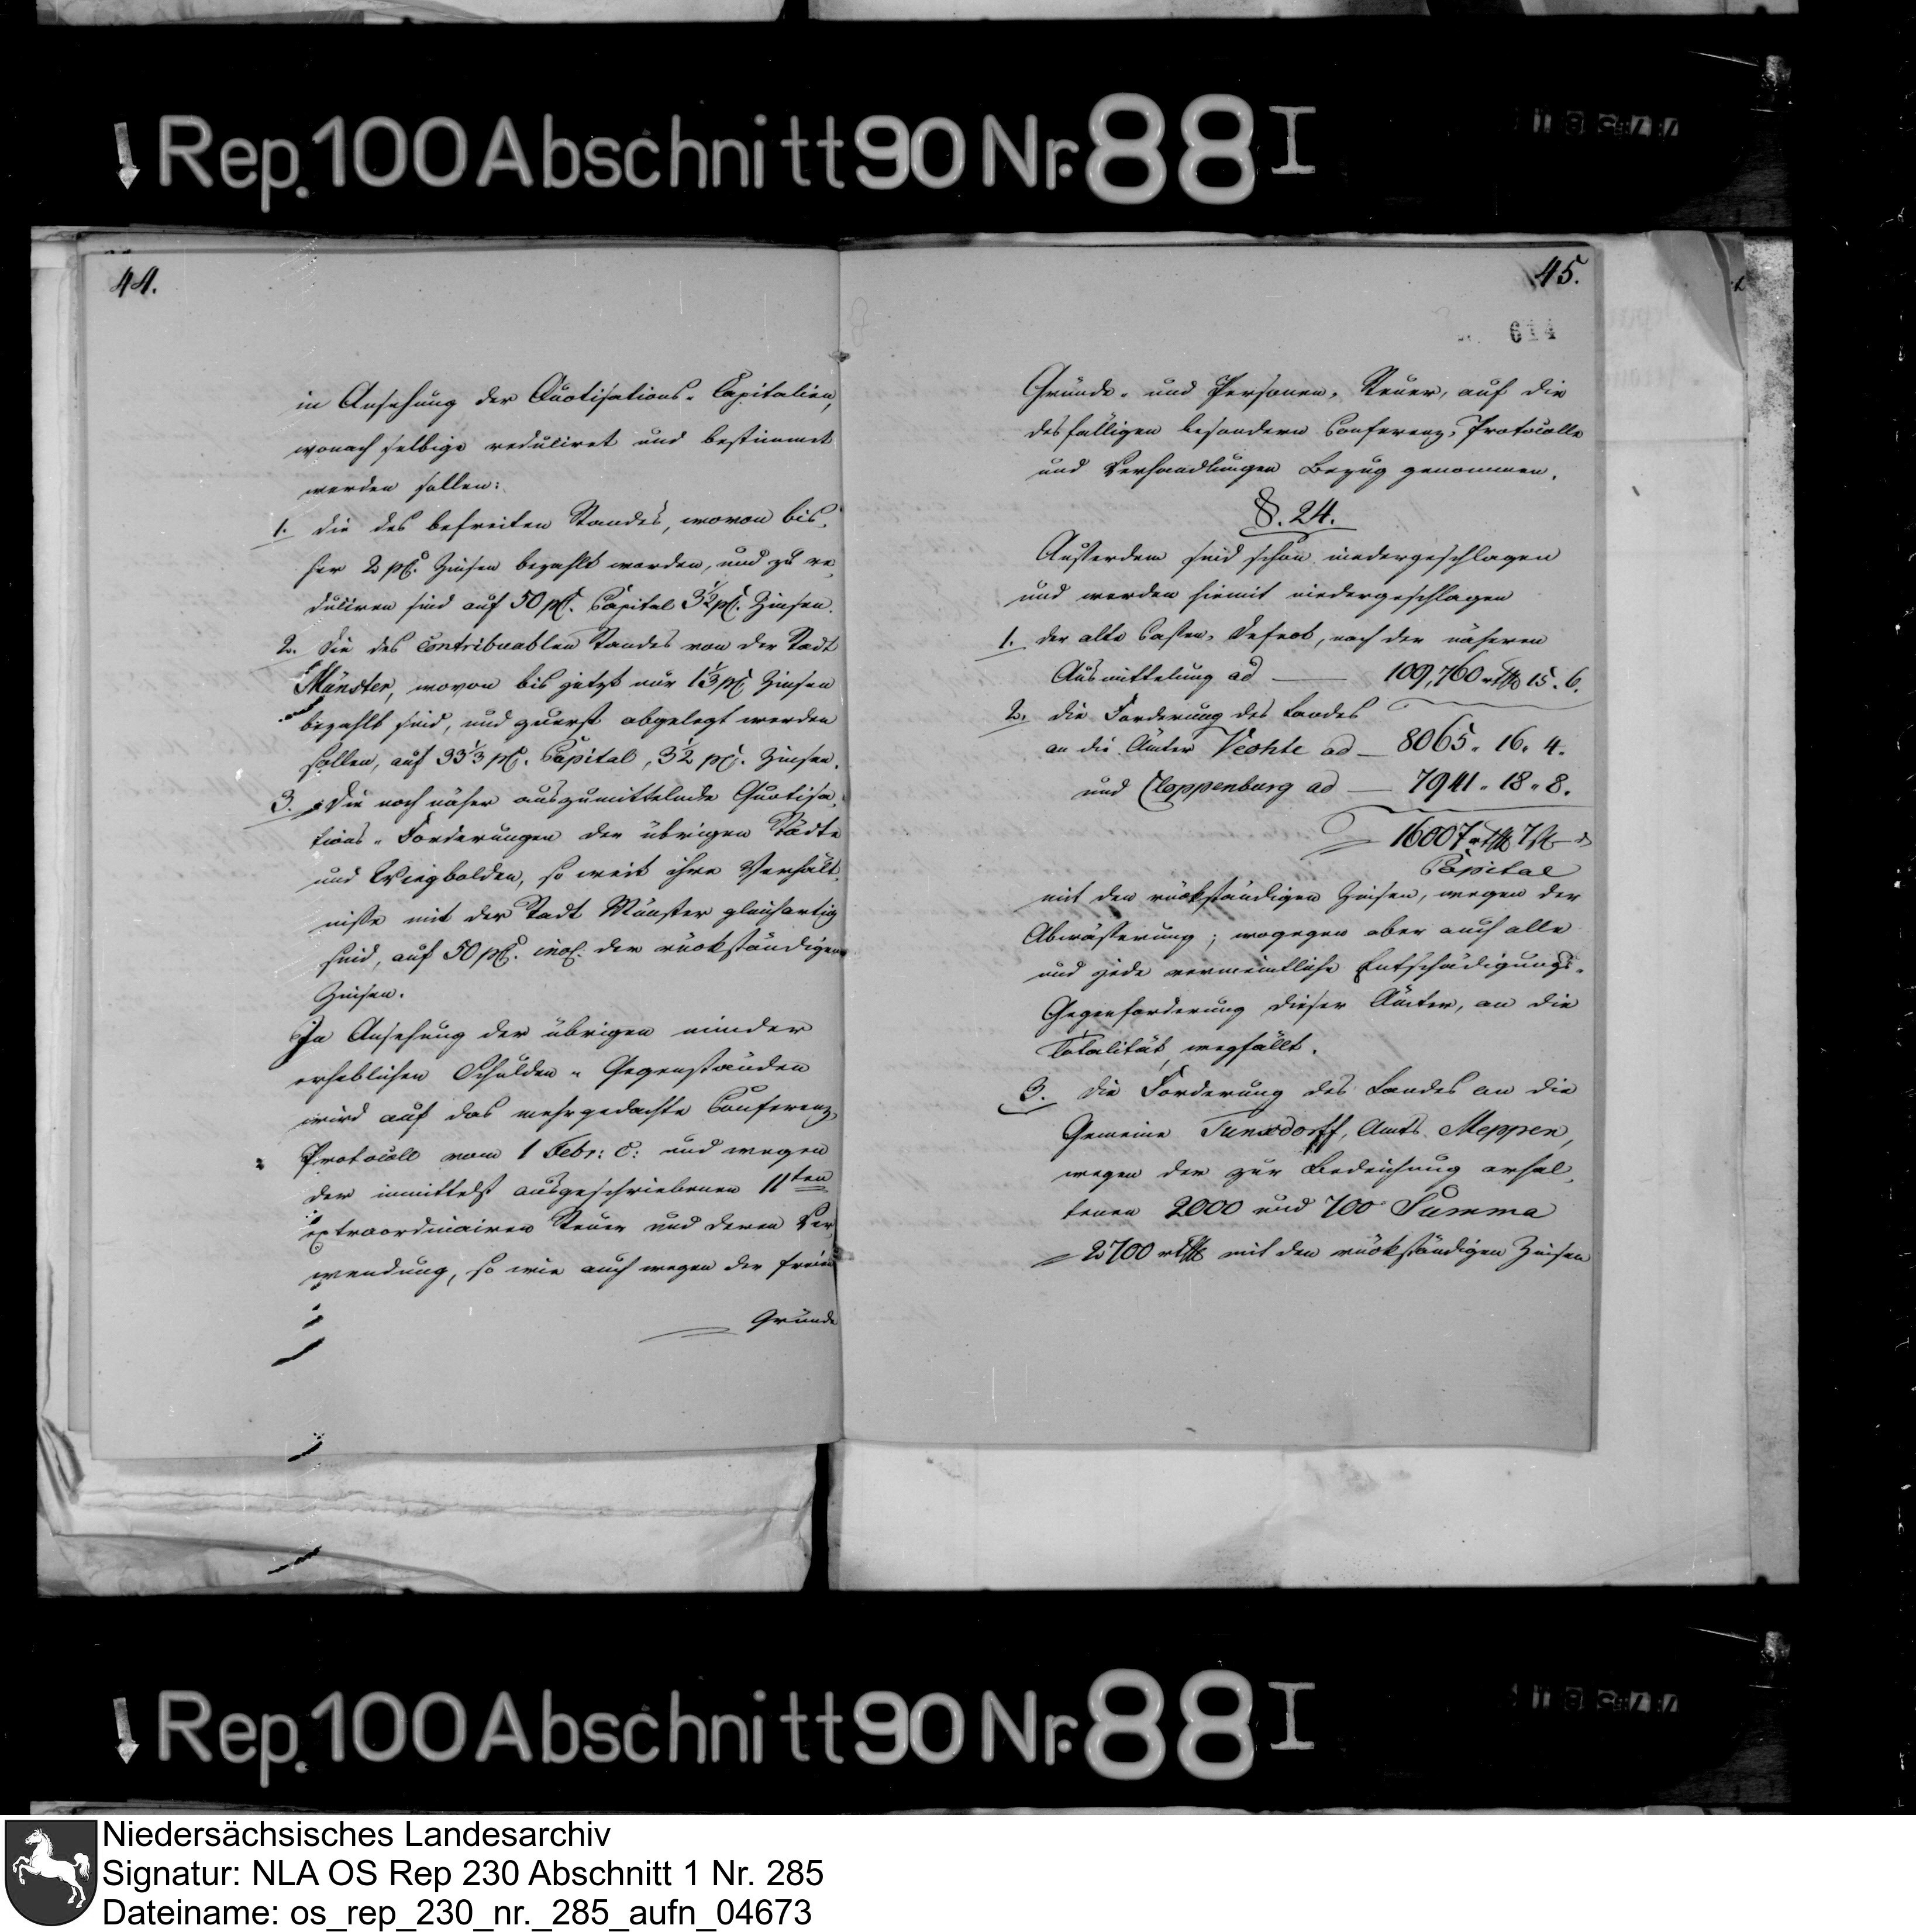 Rep. 100 Abschnitt 90 Nr. 88 I
44.
in Ansehung der Quotisations-Capitalien,
wonach selbige reduciret und bestimmet
werden sollen:
1. die des befreiten Standes, wovon bis-
her 2 pC. Zinsen bezahlt worden, und zu re-
duciren sind auf 50 pC. Capital 3½ pC. Zinsen.
2. Die des contribuablen Standes von der Stadt
Münster, wovon bis jetzt nur 1⅓ pC. Zinsen
bezahlt sind, und zuerst abgelegt werden
sollen, auf 33⅓ pC. Capital, 3½ pC. Zinsen.
3. Die noch näher auszumittelnde Quotisa-
tions-Forderungen der übrigen Städte
und Wiegbolden, so weit ihre Verhält-
nisse mit der Stadt Münster gleichartig
sind, auf 50 pC. incl. der rückständigen
Zinsen.
In Ansehung der übrigen minder
erheblichen Schulden-Gegenständen
wird auf das mehrgedachte Conferenz-
Protocoll vom 1 Febr: c: und wegen
der inmittelst ausgeschriebenen 11ten
extraordinairen Steuer und deren Ver-
wendung, so wie auch wegen der freien
Grund-
45.
614
Grund- und Personen-Steuer, auf die
desfälligen besondern Conferenz-Protocolle
und Verhandlungen Bezug genommen.
§. 24.
Ausserdem sind schon niedergeschlagen
und werden hiemit niedergeschlagen
1. der alte Cassen-Defect, nach der näheren
Ausmittelung ad — 109,760 rthlr 15. 6.
2. die Forderung des Landes
an die Ämter Vechte ad — 8065. 16. 4.
und Cloppenburg ad — 7941. 18. 8.
16007 rthlr 7
Capital
mit den rückständigen Zinsen, wegen der
Abwässerung; wogegen aber auch alle
und jede vermeintliche Entschädigungs-
Gegenforderung dieser Ämter, an die
Totalität wegfällt.
3. die Forderung des Landes an die
Gemeine Tunxdorff, Amts Meppen,
wegen der zur Bedeichung erhal-
tenen 2000 und 700 Summa
2700 rthlr mit den rückständigen Zinsen
Rep. 100 Abschnitt 90 Nr. 88 I
Niedersächsisches Landesarchiv
Signatur: NLA OS Rep 230 Abschnitt 1 Nr. 285
Dateiname: os_rep_230_nr._285_aufn_04673